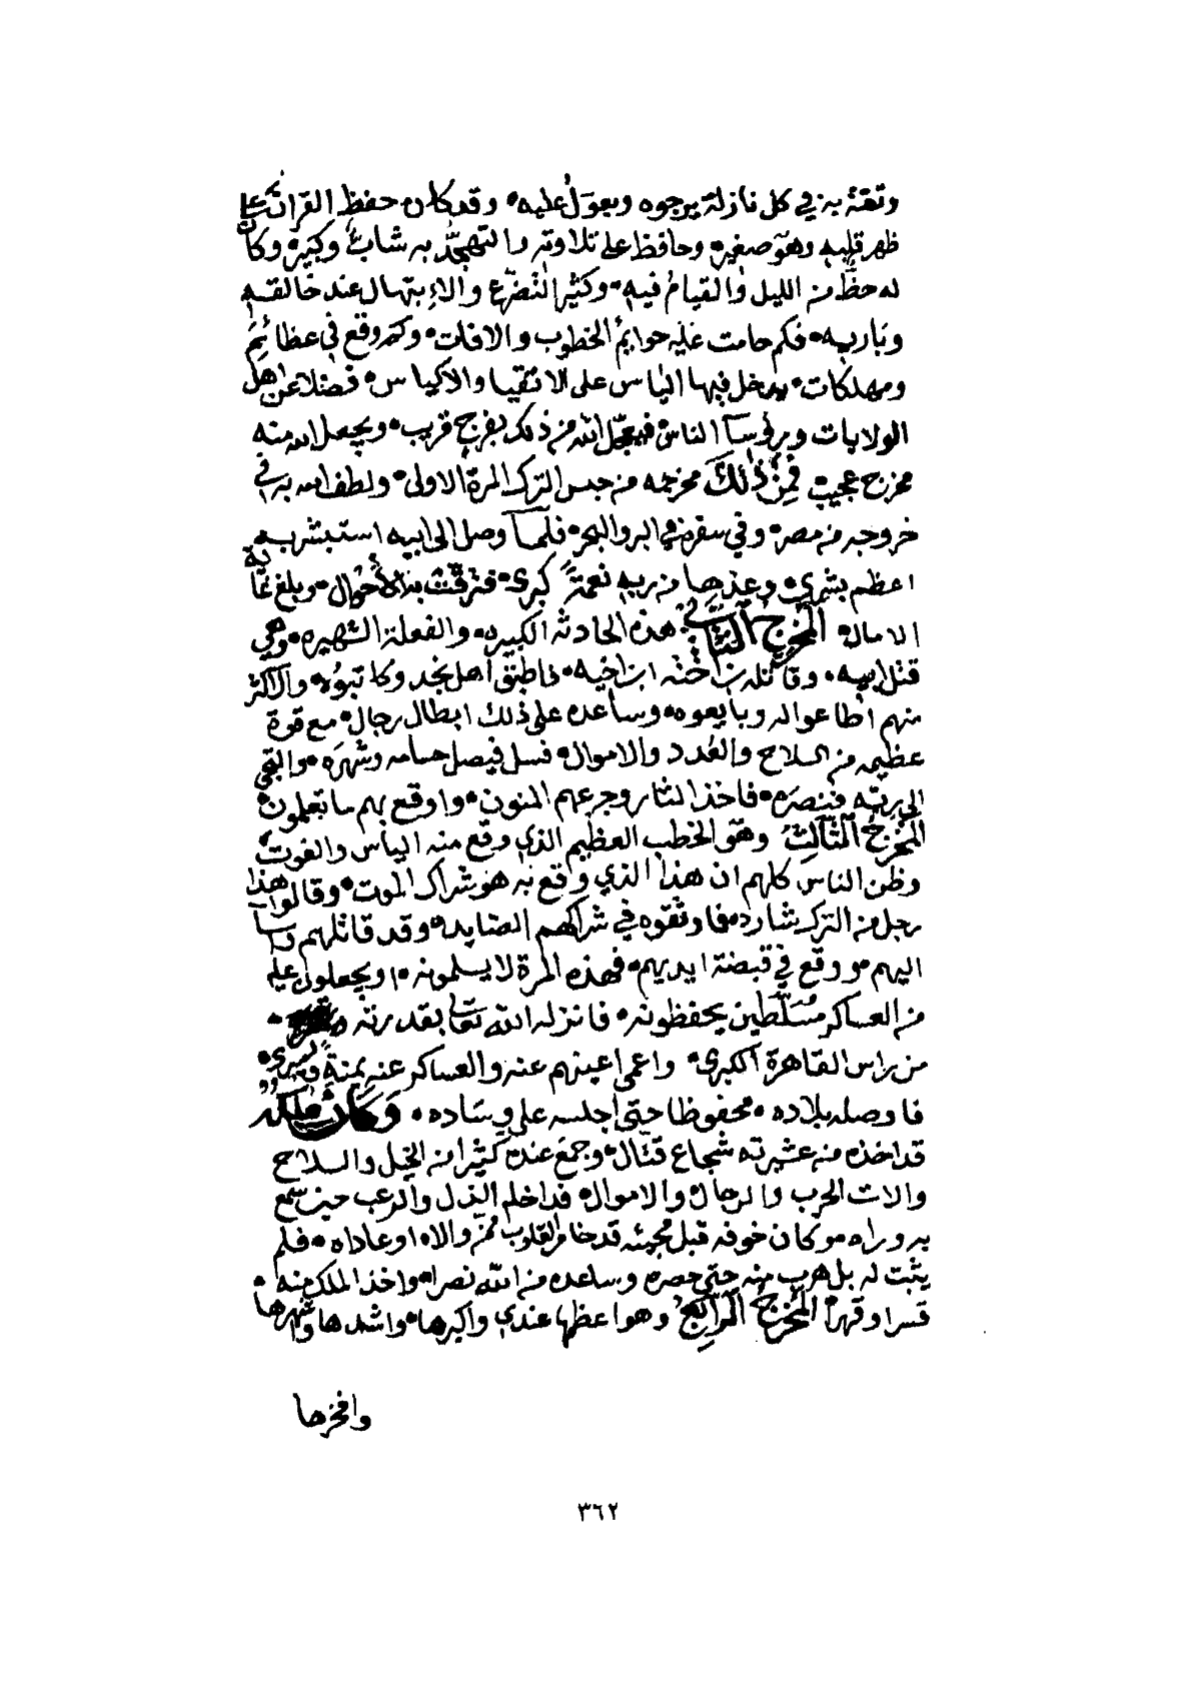 وثقة به في كل نازلة يرجوه ويعوّل عليه ۰ وقد كان حفظ القرآن على
ظهر قلبه وهو صغير وحافظ على تلاوته والتهجّد به شاب وكبير وكان
له حظّ من الليل والقيام فيه ۰ وكثير التضرّع والإبتهال عند خالقه
وباريه ۰ فكم حامت عليه حوايم الخطوب والافات ۰ وكم وقع في عظائم
ومهلكات ۰ يدخل فيها الياس على الاتقيا والاكياس ۰ فضلا عن اهل
الولايات ورؤسآ الناس فيعجّل الله من ذلك بفرج قريب ۰ ويجعل الله منه
مخرج عجيب فمن ذلك مخرجه من حبس الترك المرة الاولى ۰ ولطف الله به في
خروجه من مصر ۰ وفي سفره في البر والبحر ۰ فلمآ وصل الى ابيه استبشر به
اعظم بشرى ۰ وعدها من ربه نعمة كبرى ۰ فترقت به الأحوال ۰ وبلغ غاية
الامال ۰ المخرج الثاني هذه الحادثه الكبيره ۰ والفعلة الشهيره ۰ وهي
قتل ابيه ۰ وقاتله ابن اخته ابن اخيه ۰ فاطبق اهل نجد وكاتبوه ۰ والاكثر
منهم اطاعوا له وبايعوه ۰ وساعده على ذلك ابطال رجال ۰ مع قوة
عظيمه من السلاح والعُدد والاموال ۰ فسل فيصل حسامه وشهره ۰ والتجى
الى ربّه فنصره ۰ فاخذ الثار وجرعهم المنون ۰ واوقع بهم ما تعلمون ۰
المخرج الثالث وهو الخطب العظيم الذي وقع منه الياس والفوت ۰
وظن الناس كلهم ان هذا الذي وقع به هو شراك الموت ۰ وقالوا هذا
رجل من الترك شارد ۰ فاوثقوه في شراكهم الصايد ۰ وقد قاتلهم
اليهم ووقع في قبضة ايديهم ۰ فهذه المرة لا يسلمونه ۰ او يجعلون عليه
من العساكر مسلّطين يحفظونه ۰ فانزله الله تعالى بقدرته
من راس القاهرة الكبرى ۰ واعمى اعينهم عنه والعساكر عنه يمنة ويسرى ۰
فاوصله بلاده ۰ محفوظا حتى اجلسه على وساده ۰ وكان ملكه
قد اخذه منه عشيرته شجاع قتال ۰ وجمع عنده كثيرا من الخيل والسلاح
والات الحرب والرجال والاموال ۰ فداخله الذل والرعب حين سمع
به وراه ۰ وكان خوفه قبل مجيئه قد خامر القلوب ممن والاه او عاداه ۰ فلم
يثبت له بل هرب منه حتى حصره وساعده من الله نصرا ۰ واخذ الملك منه ۰
قسرا وقهرا ۰ المخرج الرابع وهو اعظمها عندي واكبرها ۰ واشدها واشهرها
وافخرها
٣٦٢